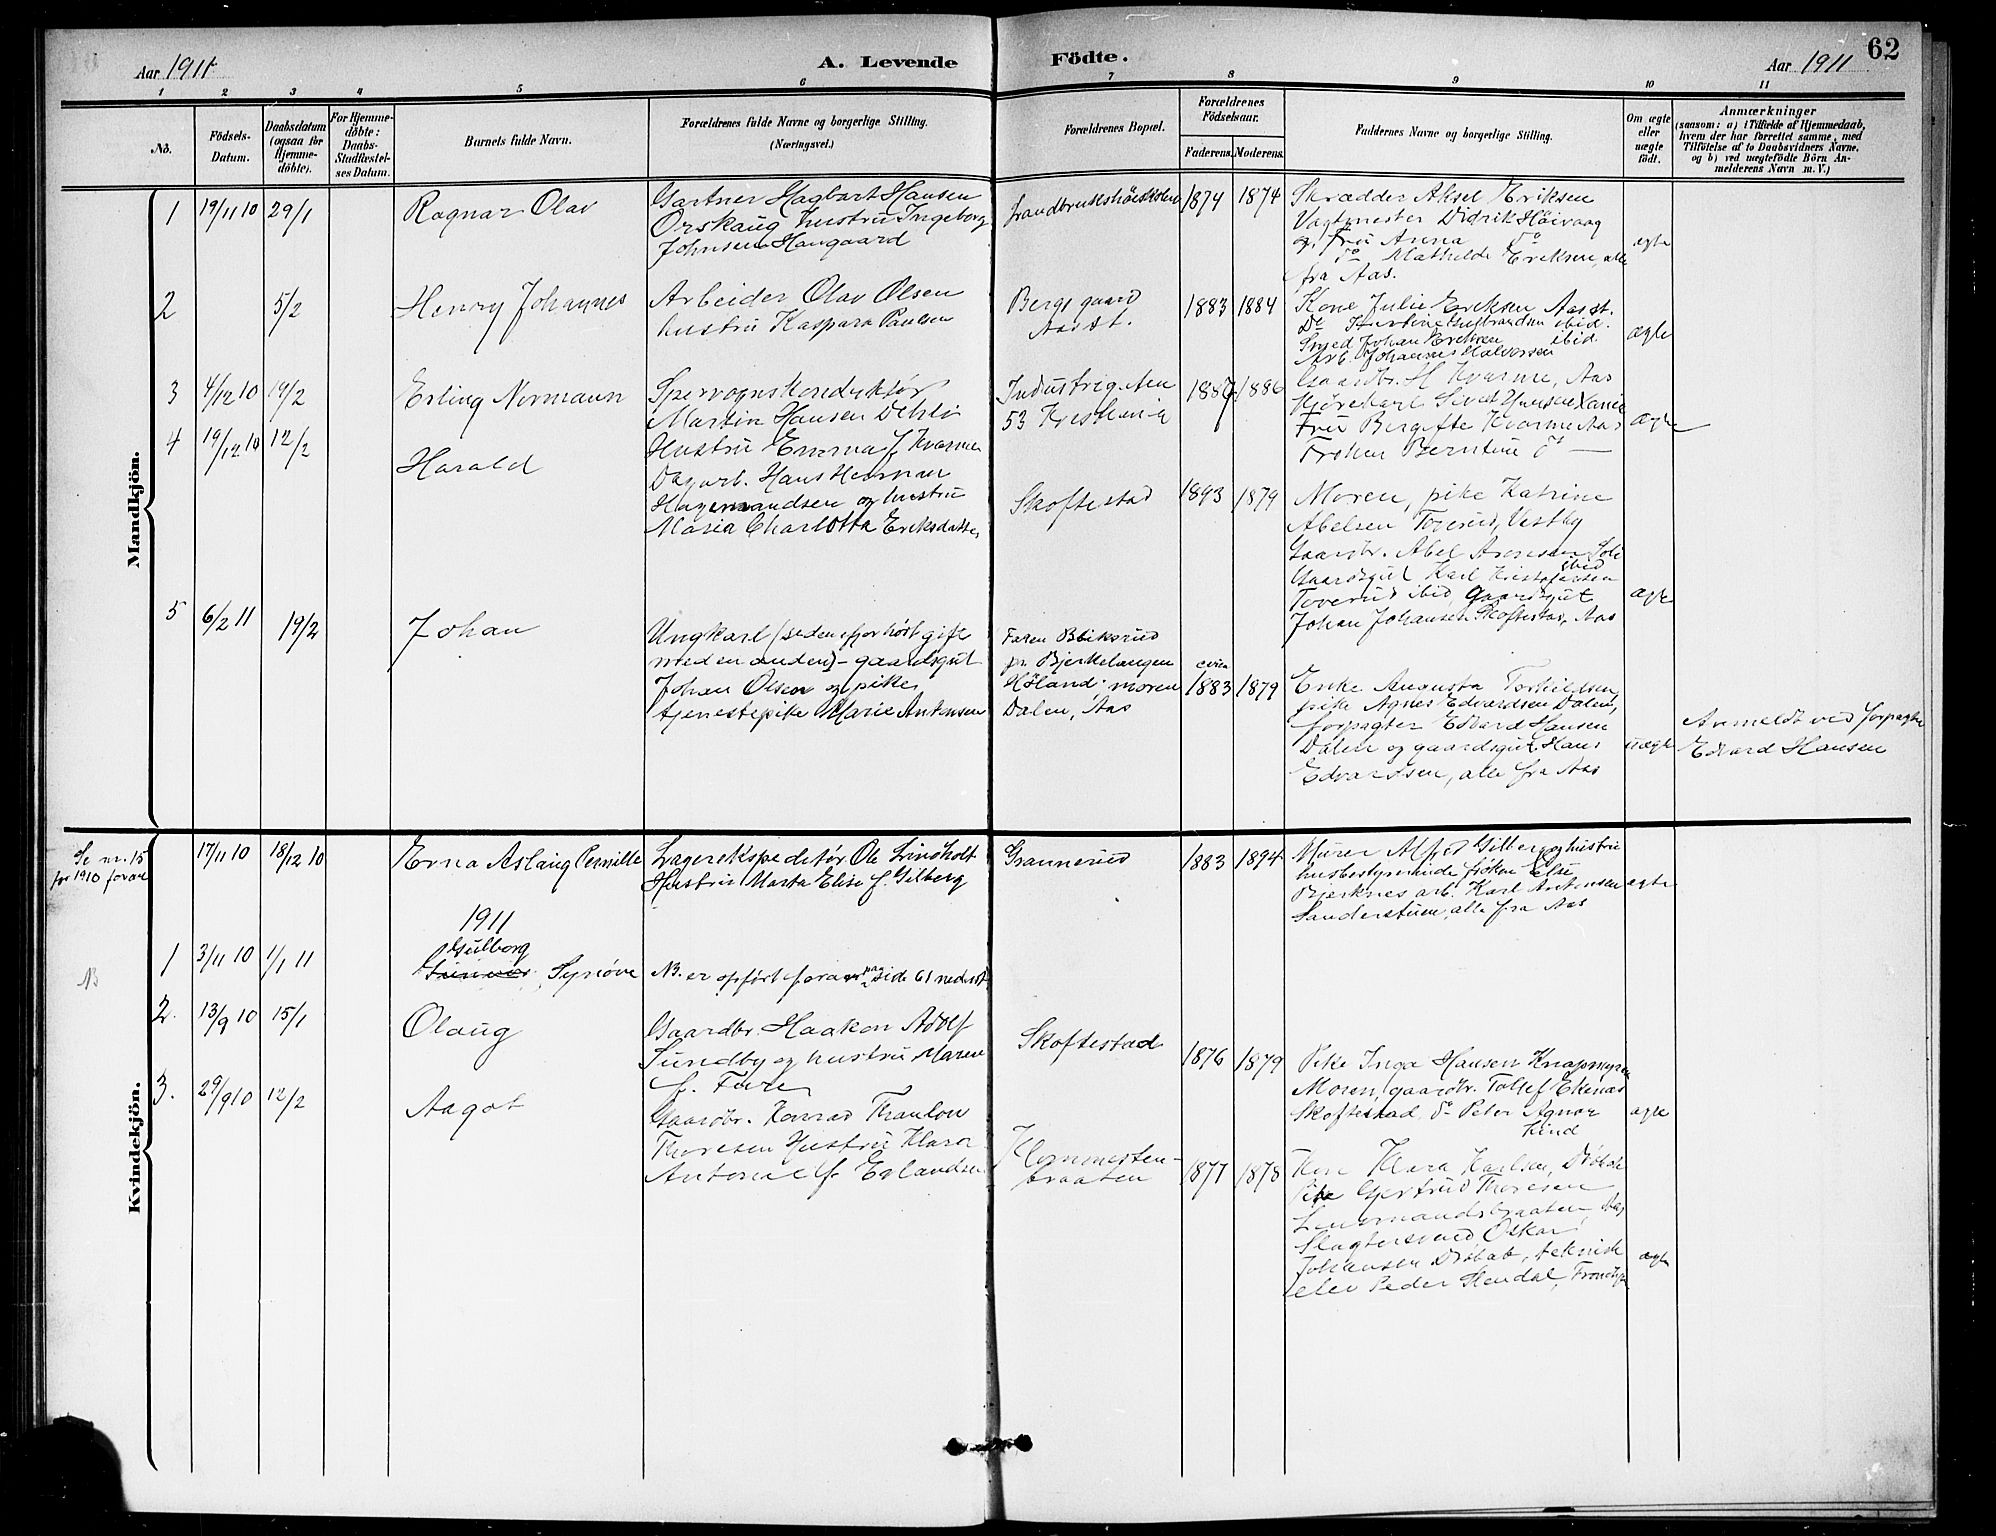 Aar 1911
A. Levende Födte.
Aar 1911 62
1 2 3 4 5 6 7 8 9 10 11
No.
Födsels-Datum.
Daabsdatum (ogsaa for Hjemme-döbte).
For Hjemme-döbte: Daabs-Stadfæstel-ses Datum.
Barnets fulde Navn.
Forældrenes fulde Navne og borgerlige Stilling.
(Næringsvei.)
Forældrenes Bopæl.
Forældrenes Födselsaar.
Faderens. Moderens.
Faddernes Navne og borgerlige Stilling.
Om ægte eller uægte födt.
Anmærkninger
(saasom: a) i Tilfælde af Hjemmedaab, hvem der har forrettet samme, med Tilföielse af to Daabsvidners Navne, og b) ved uægtefödte Börn An-melderens Navn m. V.)
Mandkjön.
1 19/11 10 29/1
Ragnar Olav
Gartner Hagbart Hansen
Orskaug hustru Ingeborg
Johnsen Haugaard
Landbrukshöiskolen
1874 1874
Skrædder Aksel Eriksen
Vagtmester Didrik Höivaag
og Fru Anna do
do Mathilde Eriksen, alle
fra Aas.
ægte
2 5/2
Henry Johannes
Arbeider Olav Olsen
hustru Kaspara Paulsen
Bergsgaard
Aas st.
1883 1884
Kone Julie Eriksen Aas st.
Do Gulbrandsen ibid.
Smed Johan Eriksen ibid.
Arb. Johannes Halvorsen
ægte
3 4/12 10 19/2
Erling Normann
Sporvognskonduktör
Martin Hansen
Hustru Emma f. Kvarme
Industrigaten
53 Kristiania
1887 1886
Gaardbr. H Kvarme, Aas
Kjörekarl
Fru Bergitte Kvarme Aas
Fröken Berntine do
ægte
4 19/12 10 12/2
Harald
Dagarb. Hans Herman
Hagemandsen og hustru
Maria Charlotta Eriksdatter
Skoftestad
1893 1879
Moren, pike Katrine
Abelsen Toverud, Vestby
Gaardbr. Abel Arnesen
ibid
Gaardsgut Karl Kristofersen
Toverud ibid, gaardsgut
Johan Johansen Skoftestad, Aas
ægte
5 6/2 11 19/2
Johan
Ungkarl (siden efter hört gift
med en anden) - gaardsgut
Johan Olsen og pike,
tjenestepike Marie Antonsen
Faren Bliksrud
pr. Bjerkelangen
Höland, moren
Dalen, Aas
circa
1883 1879
Enke Augusta Torkildsen,
pike Agnes Edvardsen Dalen,
forpagter Edvard Hansen
Dalen og gaardsgut Hans
Edvardsen, alle fra Aas
uægte
Anmeldt ved forpagter
Edvard Hansen
Kvindekjön.
Se nr. 15
for 1910 foran
17/11 10 18/12 10
Erna Aslaug Pernille
Lagerekspeditör Ole Lindholt
Hustru Marta Elise f. Gilberg
Grannerud
1883 1894
Murer Alfred Gilberg og hustru
husbestyrerinde fröken Else
Bjerknes arb. Karl Antonsen
Sanderstuen, alle fra Aas
ægte
1911
NB
1 3/11 10 1/1 11
Gulborg
Synöve
NB. er opfört foran paa side 61 nederst
2. 13/9 10 15/1
Olaug
Gaardbr. Haakon Adolf
Sundby og hustru Maren
f. Tveter
Skoftestad
1876 1879
Pike Inga Hansen Knapmyren
Moren, gaardbr. Tollef Ekenæs
Skoftestad, do Peter Agnar
Kind
ægte
3. 29/9 10 12/2
Aagot
Gaardbr. Konrad Thranlov
Thoresen Hustru Klara
Antonie f. Erlandsen
braaten
1877 1878
Kone Klara Karlsen, Dröbak
Pike Gjertrud Thoresen
Lensmandsbraaten, Aas
Slagtersvend Oskar
Johansen Dröbak, teknisk
elev Peder Stendal,
ægte